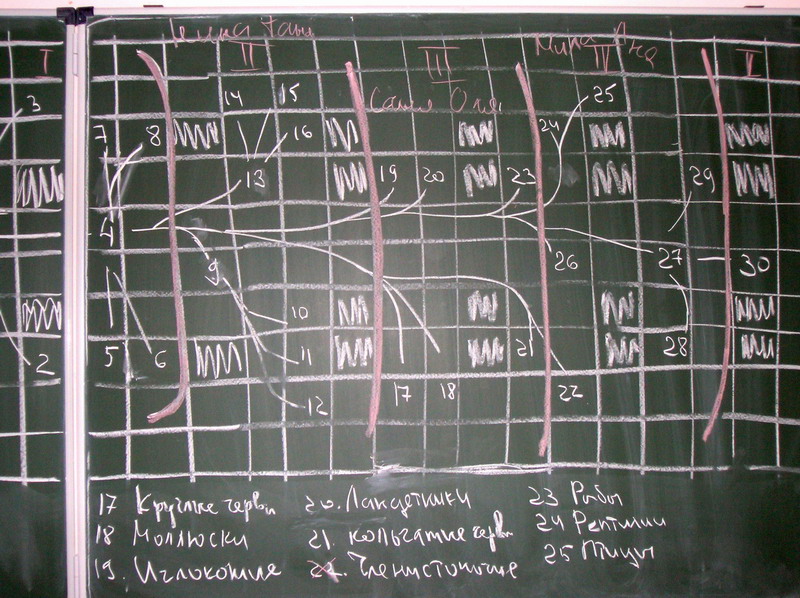 I II III IV V
Саша Оля
3 14 15 24 25
7 8 16
13 19 20 23 29
4
9 26 27 30
10
5 6 11 21 28
2
12 17 18 22
17 Круглые черви 20. Ланцетники 23 Рыбы
18 Моллюски 21. Кольчатые черви 24 Рептилии
19. Иглокожие 22. Членистоногие 25 Птицы